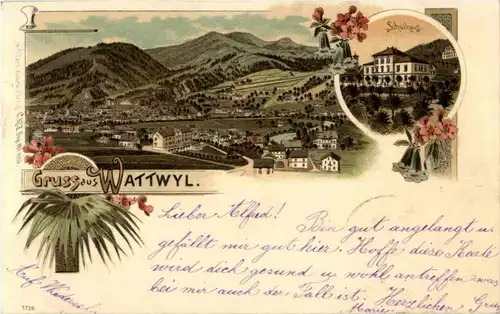 Schulhaus
Gruss aus Wattwyl.
Lieber Alfred!
Bin gut angelangt u.
gefällt mir gut hier. Hoffe diese Karte
wird dich gesund u. wohl antreffen was
bei mir auch der Fall ist. Herzlichen Gruss
Marie
Auf Wiederseh
1126